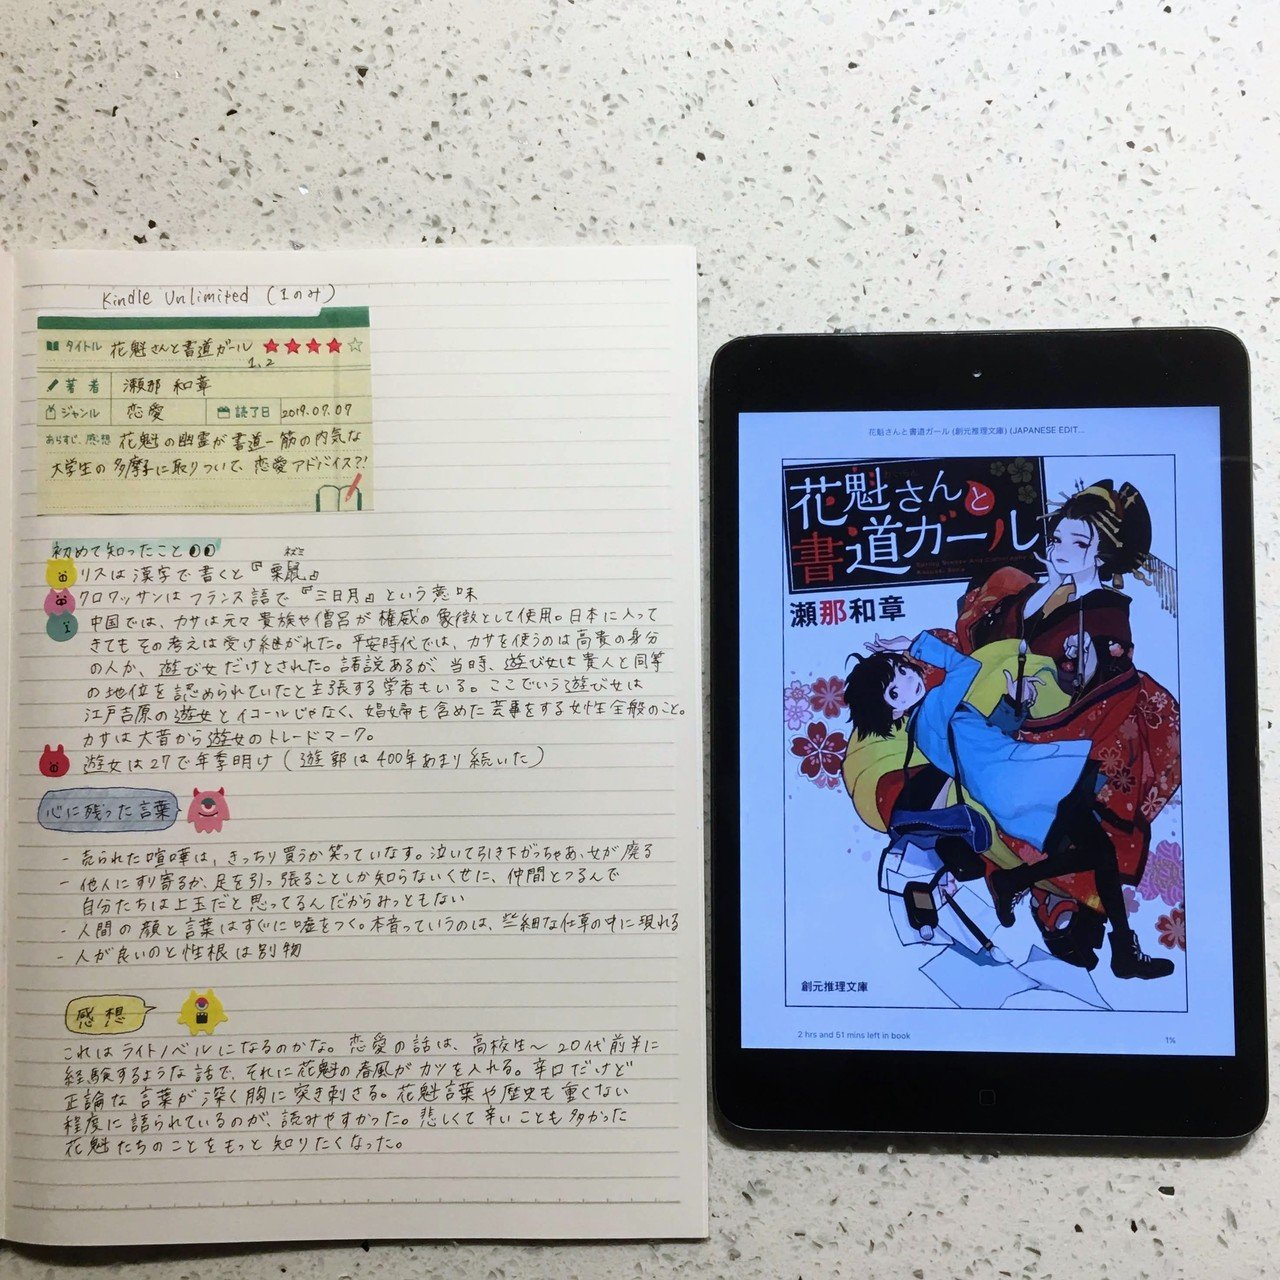 Kindle Unlimited (1のみ)
タイトル 花魁さんと書道ガール
1, 2
著者 瀬那 和章
ジャンル 恋愛 読了日 2019.07.07
あらすじ、感想 花魁の幽霊が書道一筋の内気な
大学生の多摩子に取りついて、恋愛アドバイス?!
初めて知ったこと
ネズミ
リスは漢字で書くと『栗鼠』
クロワッサンはフランス語で『三日月』という意味
中国では、カサは元々貴族や僧侶が権威の象徴として使用。日本に入って
きてもその考えは受け継がれた。平安時代では、カサを使うのは高貴の身分
の人か、遊び女だけとされた。諸説あるが、当時、遊び女は貴人と同等
の地位を認められていたと主張する学者もいる。ここでいう遊び女は
江戸吉原の遊女とイコールじゃなく、娼婦も含めた芸事をする女性全般のこと。
カサは大昔から遊女のトレードマーク。
遊女は27で年季明け(遊郭は400年あまり続いた)
心に残った言葉
- 売られた喧嘩は、きっちり買うか笑っていなす。泣いて引き下がっちゃあ、女が廃る
- 他人にすり寄るか、足を引っ張ることしか知らないくせに、仲間とつるんで
自分たちは上玉だと思ってるんだからみっともない
- 人間の顔と言葉はすぐに嘘をつく。本音っていうのは、些細な仕草の中に現れる
- 人が良いのと性根は別物
感想
これはライトノベルになるのかな。恋愛の話は、高校生〜20代前半に
経験するような話で、それに花魁の春風がカツを入れる。辛口だけど
正論な言葉が深く胸に突き刺さる。花魁言葉や歴史も重くない
程度に語られているのが、読みやすかった。悲しくて辛いことも多かった
花魁たちのことをもっと知りたくなった。
花魁さんと書道ガール (創元推理文庫) (JAPANESE EDIT...
花魁さんと
書道ガール
瀬那和章
創元推理文庫
2 hrs and 51 mins left in book
1%